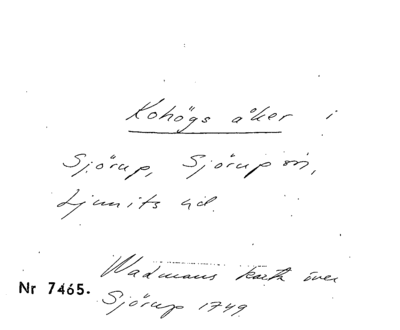 Kohögs åker i
Sjörup, Sjörup sn,
Ljunits hd.
Wadmans karta över
Nr 7465.
Sjörup 1749